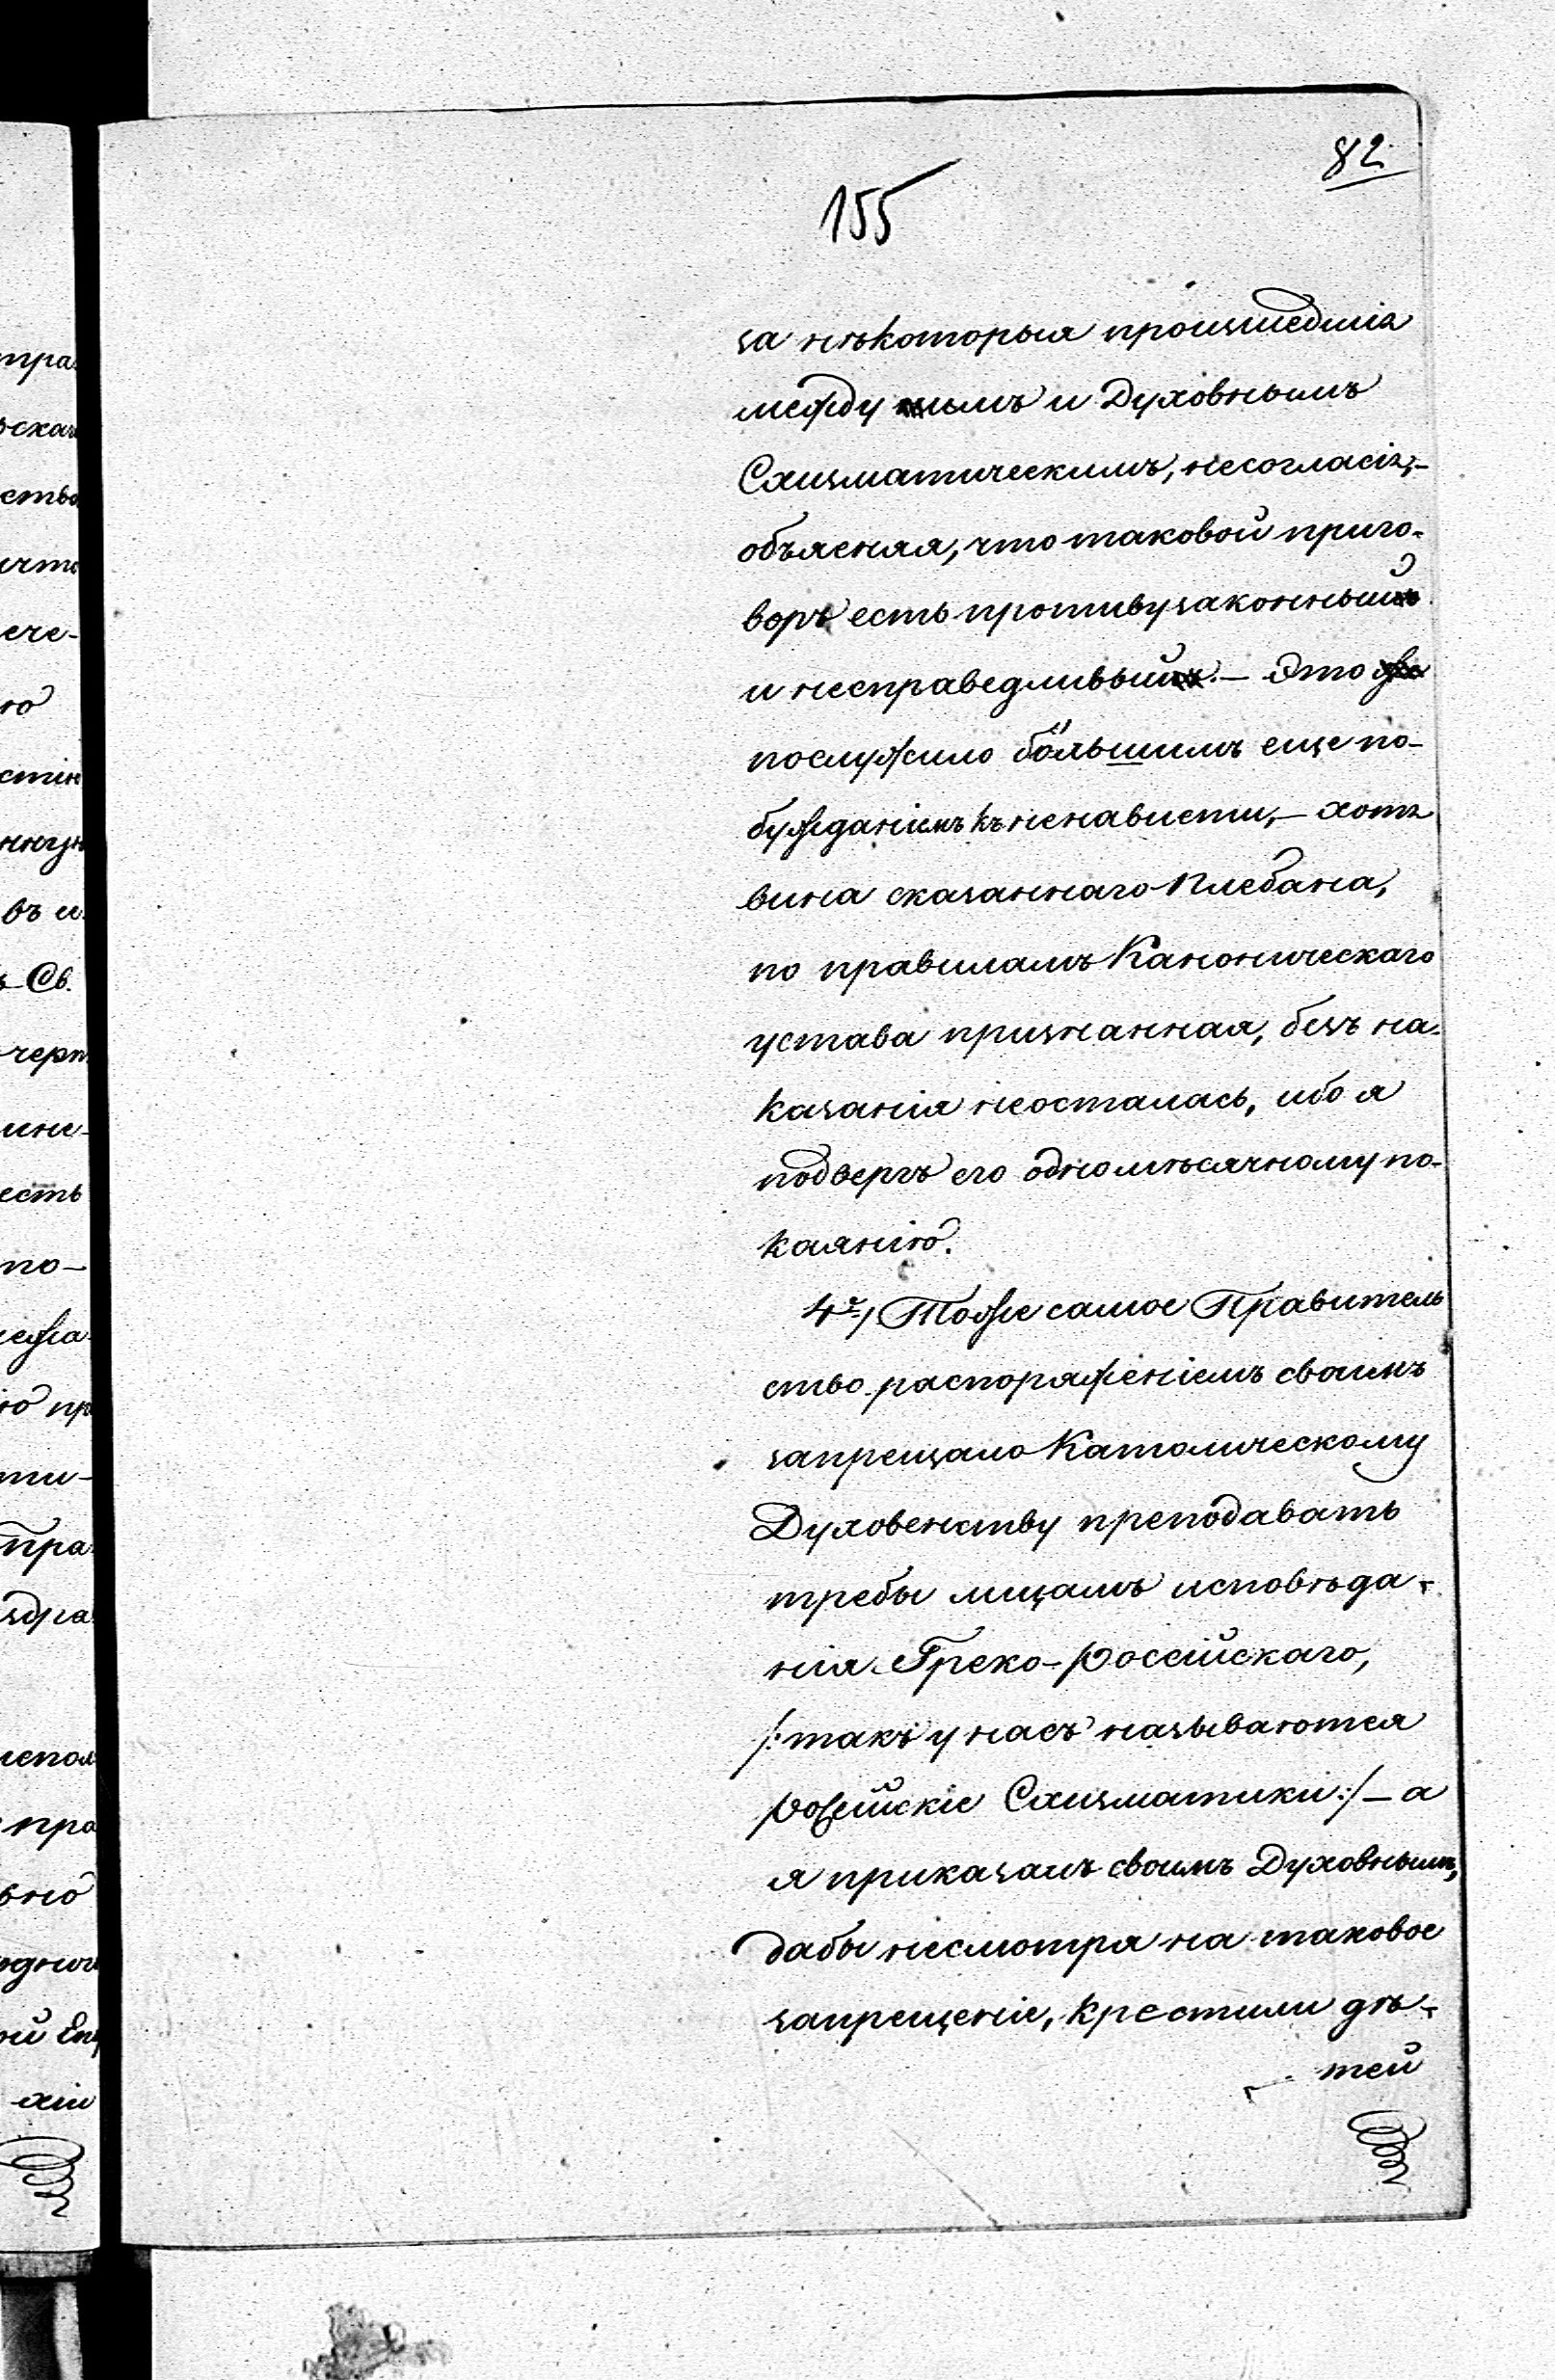 82
155
за нѣкоторыя произшедшія
между нимъ и Духовнымъ
Схизматическимъ, несогласія,–
объясняя, что таковой приго-
воръ есть противузаконный
и несправедливый.– Это
послужило большимъ еще по-
бужданіемъ къ ненависти,– хотя
вина сказаннаго Плебана,
по правиламъ Каноническаго
устава признанная, безъ на-
казанія неосталась, ибо я
подвергъ его одномѣсячному по-
каянію.
4е,) Тоже самое Правитель
ство распоряженіемъ своимъ
запрещало Католическому
Духовенству преподавать
требы лицамъ исповѣда-
нія Греко-Россійскаго,
/:такъ у насъ называются
Россійскіе Схизматики:/– а
я приказалъ своимъ Духовнымъ,
дабы несмотря на таковое
запрещеніе, крестили дѣ-
тей
тра
скаго
ство
что
ече-
ю
въ и
Св.
черп
ини-
есть
по-
ію пр
ти-
пра
пра
вно
ой Еп
хіи